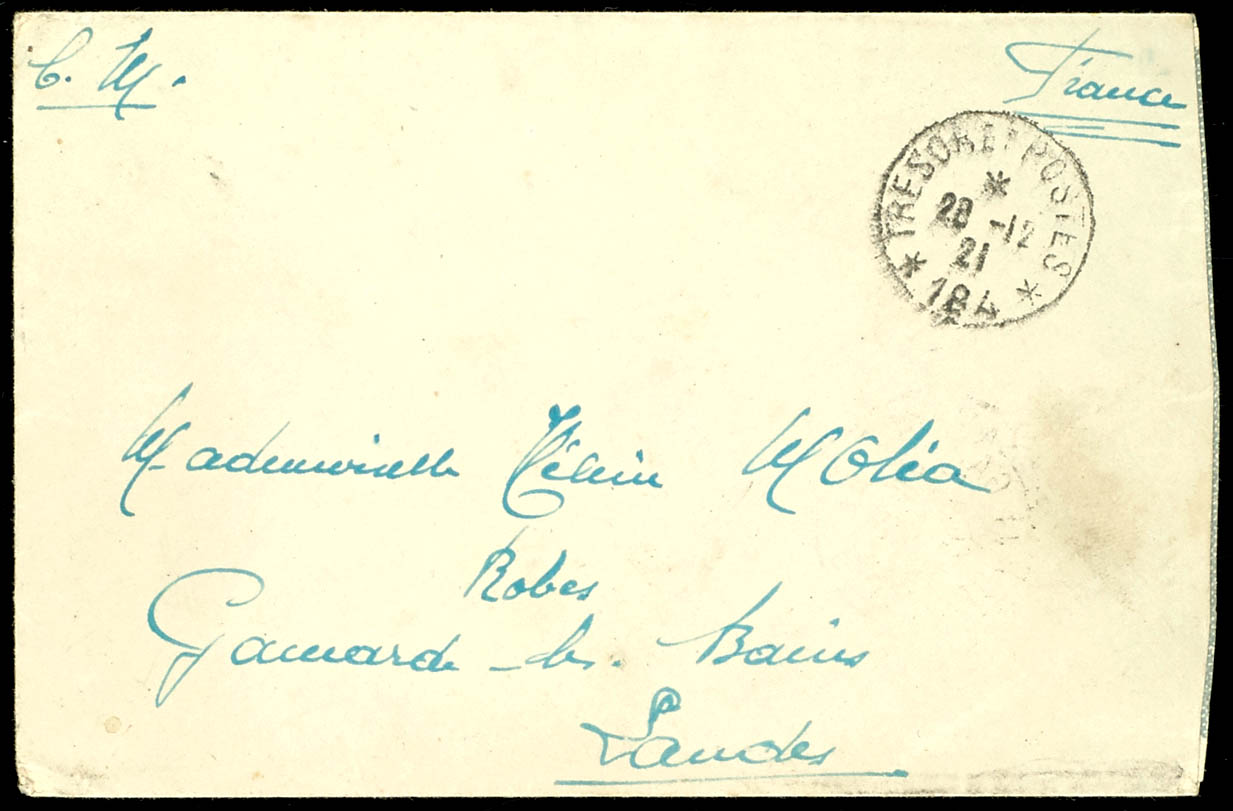 C. M.
France
TRESOR ET POSTES
28 -12
21
* 184 *
Mademoiselle Hélène Moléa
Robes
Gamarde-les-Bains
Landes